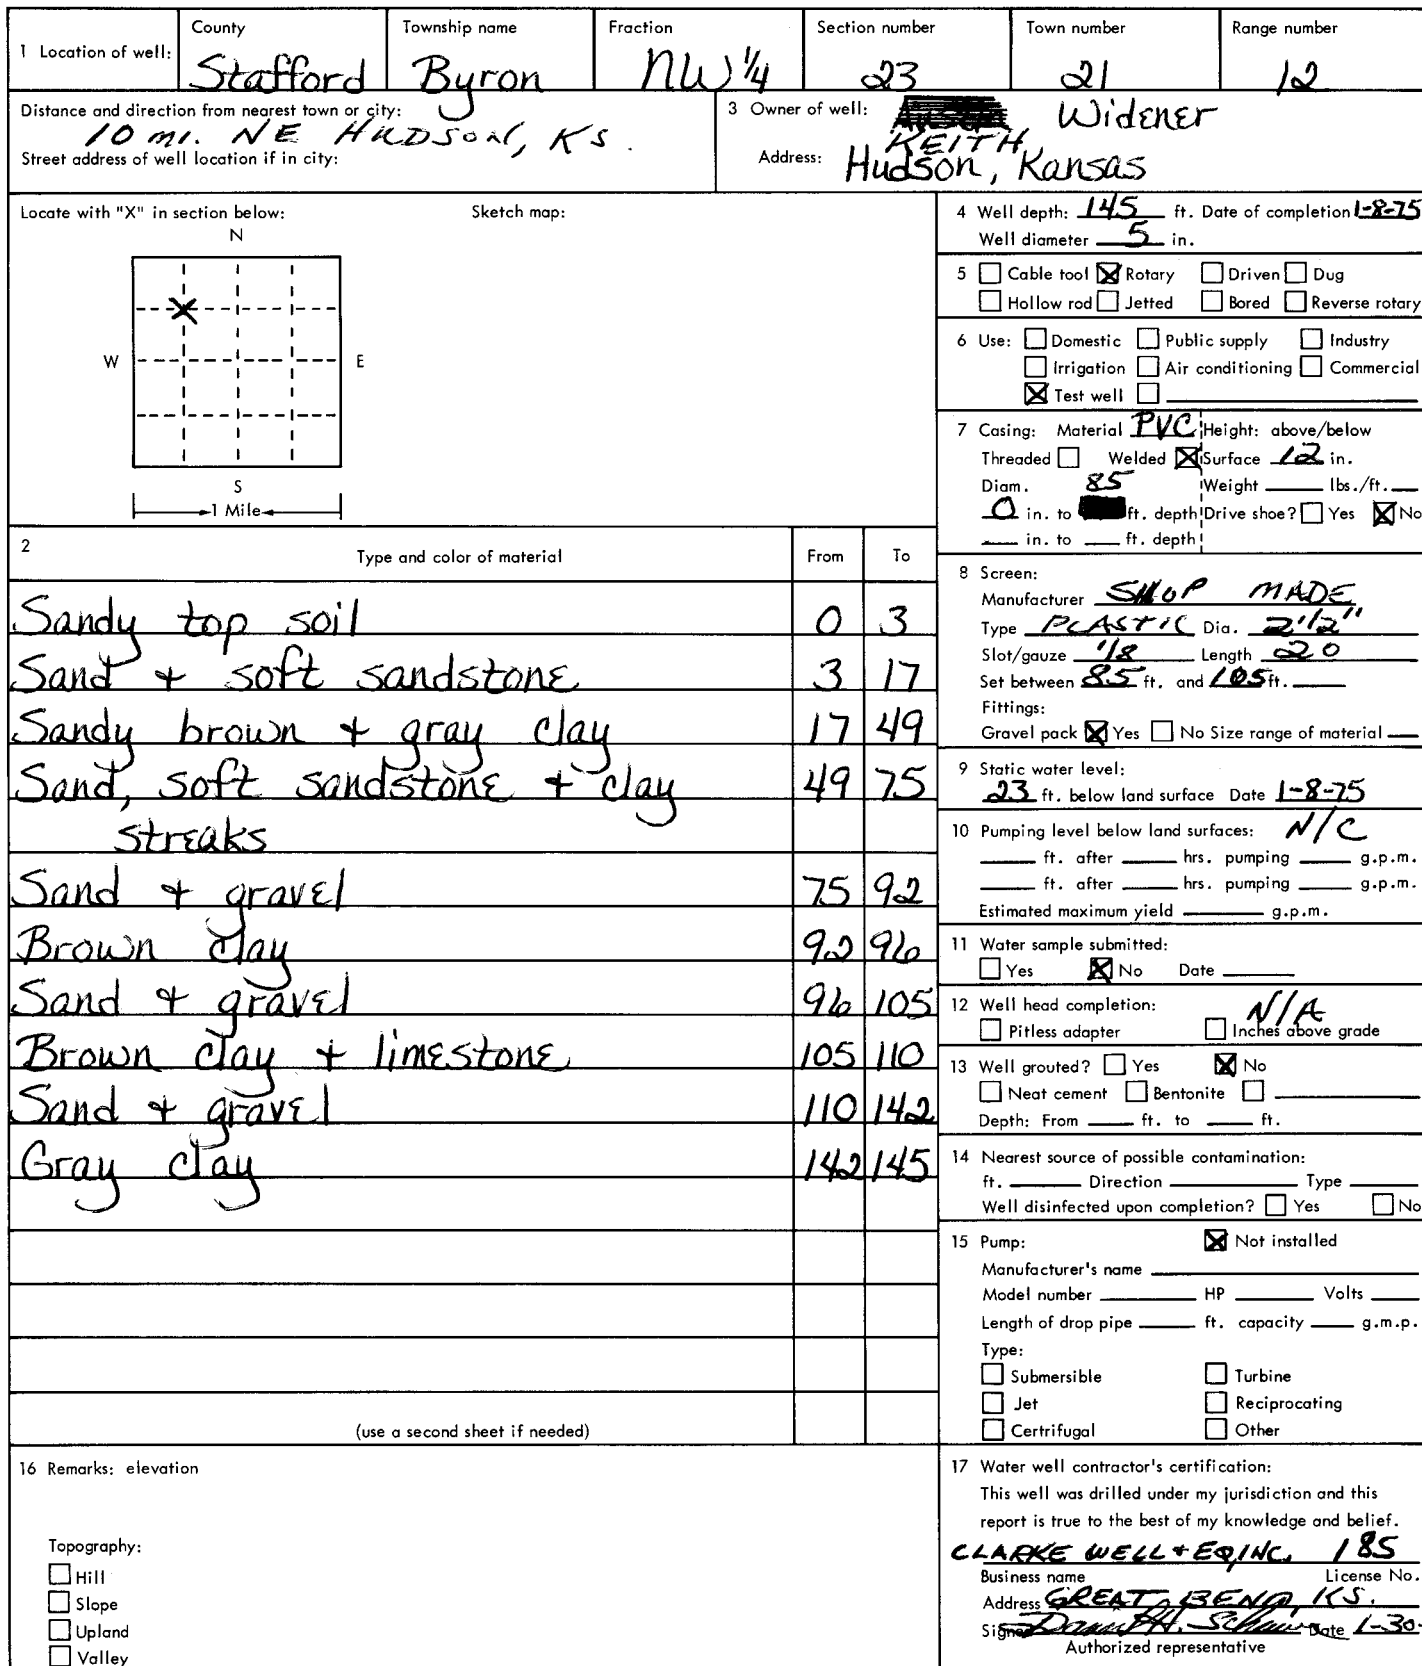 1 Location of well:
County
Stafford
Township name
Byron
Fraction
NW 1/4
Section number
23
Town number
21
Range number
12
Distance and direction from nearest town or city:
10 mi. NE HUDSON, KS.
Street address of well location if in city:
3 Owner of well:
Widener
KEITH
Address: Hudson, Kansas
Locate with "X" in section below:
Sketch map:
N
X
W
E
S
1 Mile
2
Type and color of material From To
Sandy top soil 0 3
Sand + soft sandstone 3 17
Sandy brown + gray clay 17 49
Sand, soft sandstone + clay 49 75
streaks
Sand + gravel 75 92
Brown clay 92 96
Sand + gravel 96 105
Brown clay + limestone 105 110
Sand + gravel 110 142
Gray clay 142 145
(use a second sheet if needed)
4 Well depth: 145 ft. Date of completion 1-8-75
Well diameter 5 in.
5 Cable tool X Rotary Driven Dug
Hollow rod Jetted Bored Reverse rotary
6 Use: Domestic Public supply Industry
Irrigation Air conditioning Commercial
X Test well
7 Casing: Material PVC Height: above/below
Threaded Welded X Surface 12 in.
Diam. 85 Weight lbs./ft.
0 in. to ft. depth Drive shoe? Yes X No
in. to ft. depth
8 Screen:
Manufacturer SHOP MADE
Type PLASTIC Dia. 2 1/2"
Slot/gauze 1/8 Length 20
Set between 85 ft. and 105 ft.
Fittings:
Gravel pack X Yes No Size range of material
9 Static water level:
23 ft. below land surface Date 1-8-75
10 Pumping level below land surfaces: N/C
ft. after hrs. pumping g.p.m.
ft. after hrs. pumping g.p.m.
Estimated maximum yield g.p.m.
11 Water sample submitted:
Yes X No Date
12 Well head completion: N/A
Pitless adapter Inches above grade
13 Well grouted? Yes X No
Neat cement Bentonite
Depth: From ft. to ft.
14 Nearest source of possible contamination:
ft. Direction Type
Well disinfected upon completion? Yes No
15 Pump: X Not installed
Manufacturer's name
Model number HP Volts
Length of drop pipe ft. capacity g.m.p.
Type:
Submersible Turbine
Jet Reciprocating
Certrifugal Other
16 Remarks: elevation
Topography:
Hill
Slope
Upland
Valley
17 Water well contractor's certification:
This well was drilled under my jurisdiction and this
report is true to the best of my knowledge and belief.
CLARKE WELL + EQ, INC. 185
Business name License No.
Address GREAT BEND, KS.
Signed Date 1-30-
Authorized representative